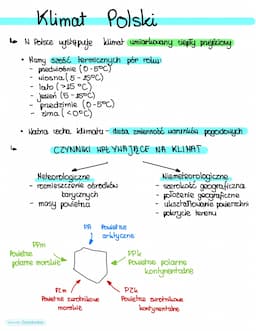 Klimat Polski
↳ W Polsce występuje klimat umiarkowany ciepły przejściowy
• Mamy sześć termicznych pór roku:
- przedwiośnie (0-5°C)
- wiosna (5-15°C)
- lato (>15 °C)
- jesień (5-15°C)
- przedzimie (0-5°C)
- zima (<0°C)
• Ważna cecha klimatu - duża zmienność warunków pogodowych
↳ CZYNNIKI WPŁYWAJĄCE NA KLIMAT
Meteorologiczne
- rozmieszczenie ośrodków
barycznych
- masy powietrza
Niemeteorologiczne
- szerokość geograficzna
- położenie geograficzne
- ukształtowanie powierzchni
- pokrycie terenu
PA Powietrze
arktyczne
PPm
Powietrze
polarne morskie
PPk
Powietrze polarne
kontynentalne
PZm
Powietrze zwrotnikowe
morskie
PZk
Powietrze zwrotnikowe
kontynentalne